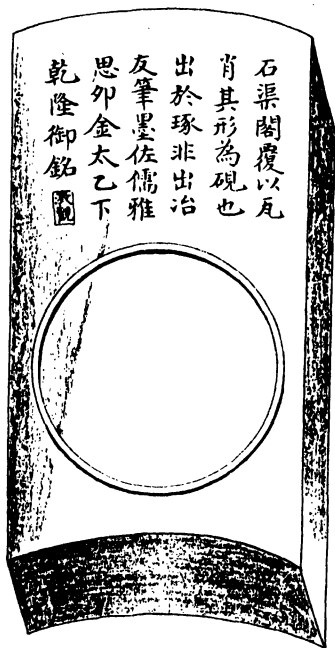 石渠閣覆以瓦
肖其形為硯也
出於琢非出冶
友筆墨佐儒雅
思卯金太乙下
乾隆御銘